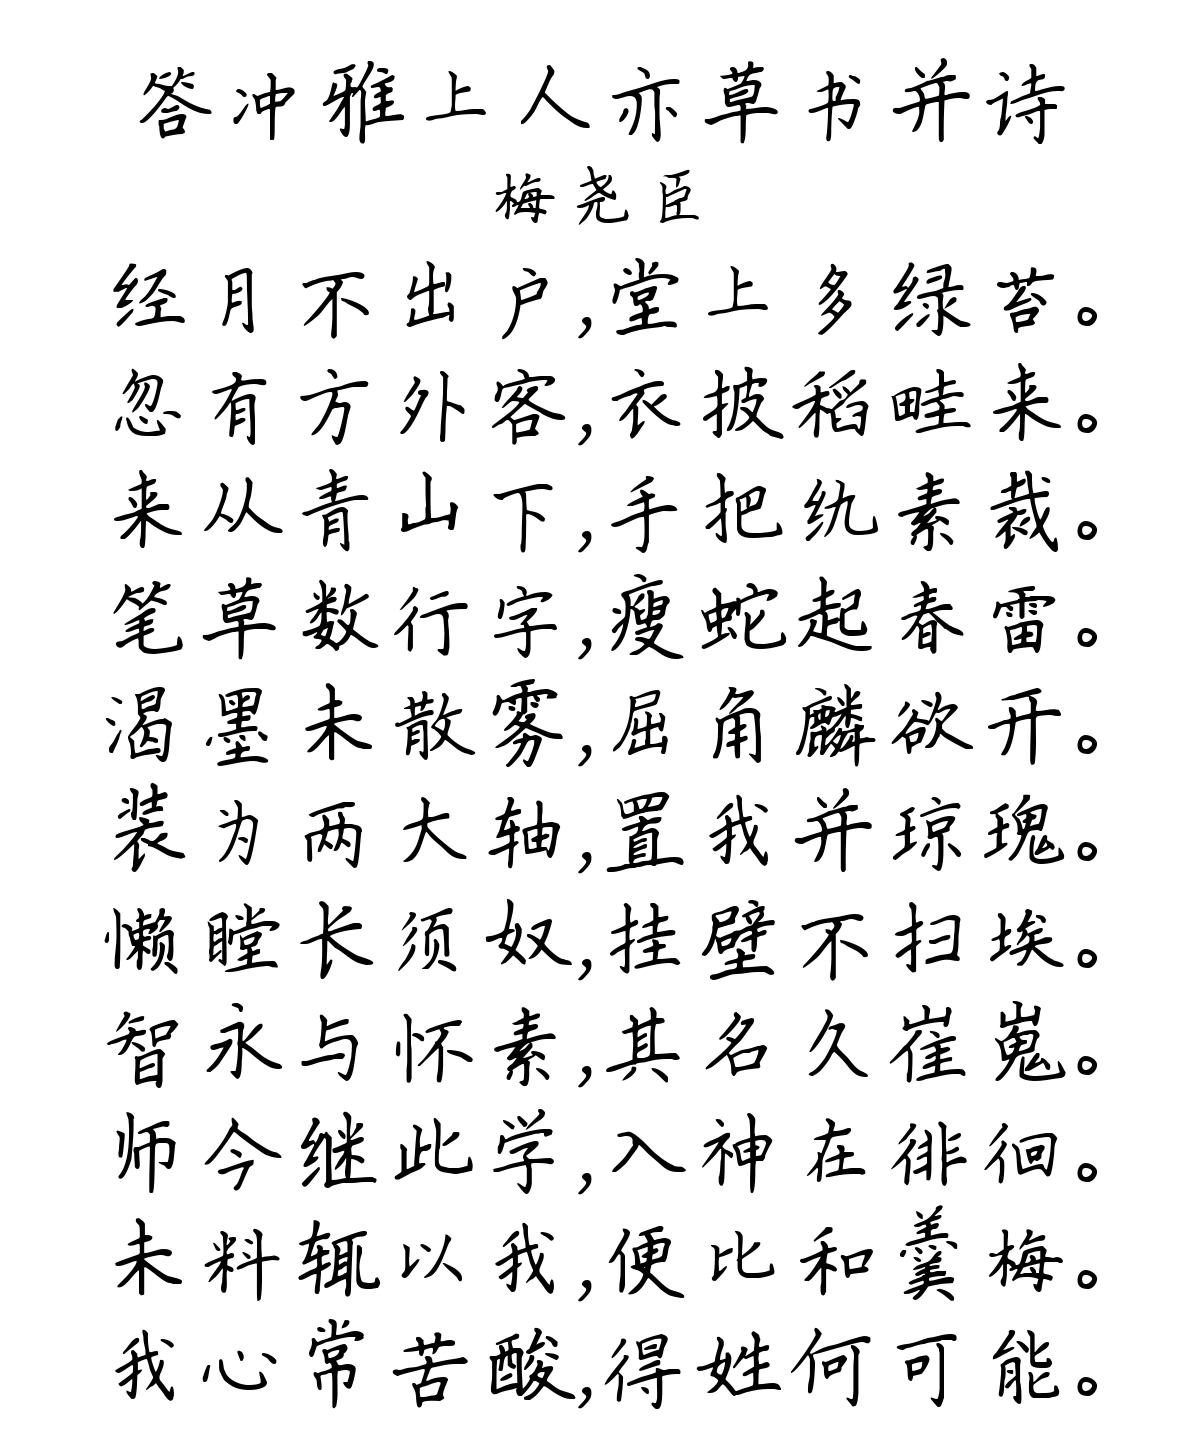 答冲雅上人亦草书并诗
梅尧臣
经月不出户,堂上多绿苔。
忽有方外客,衣披稻畦来。
来从青山下,手把纨素裁。
笔草数行字,瘦蛇起春雷。
渴墨未散雾,屈角麟欲开。
装为两大轴,置我并琼瑰。
懒瞠长须奴,挂壁不扫埃。
智永与怀素,其名久崔嵬。
师今继此学,入神在徘徊。
未料辄以我,便比和羹梅。
我心常苦酸,得姓何可能。